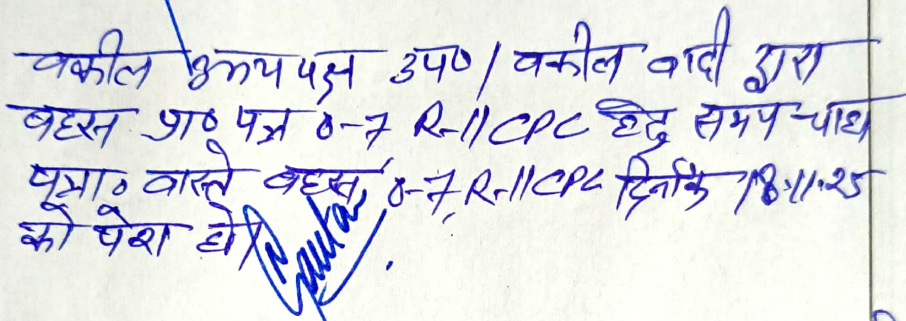 वकील उभयपक्ष उप० / वकील वादी द्वारा
बहस प्रा० पत्र 0-7 R-11 CPC हेतु समय चाहा
पत्रा० वास्ते बहस 0-7, R-11 CPC दिनांक 18.11.25
को पेश हो।